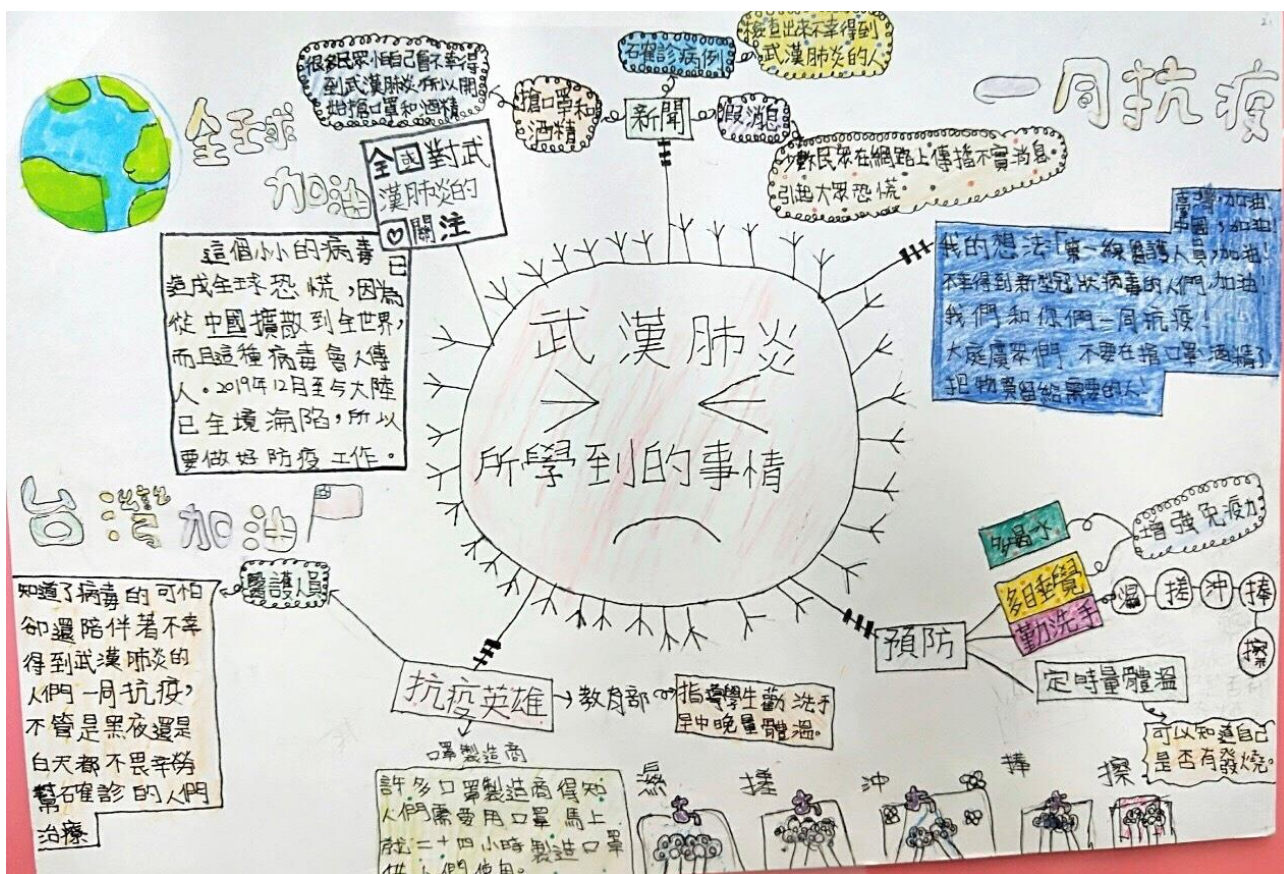 一同抗疫
全球
加油
很多民眾怕自己會不幸得
到武漢肺炎所以開
始搶口罩和酒精
搶口罩和
酒精
新聞
確診病例
檢查出來不幸得到
武漢肺炎的人
假消息
少數民眾在網路上傳播不實消息
引起大眾恐慌
全國對武
漢肺炎的
關注
這個小小的病毒已
造成全球恐慌,因為
從中國擴散到全世界,
而且這種病毒會人傳
人。2019年12月至今大陸
已全境淪陷,所以
要做好防疫工作。
武漢肺炎
所學到的事情
臺灣,加油
中國,加油
我的想法「第一線醫護人員,加油!
不幸得到新型冠狀病毒的人們,加油!
我們和你們一同抗疫!
大庭廣眾們 不要在搶口罩酒精了
把物資留給需要的人!
台灣加油
醫護人員
知道了病毒的可怕
卻還陪伴著不幸
得到武漢肺炎的
人們一同抗疫,
不管是黑夜還是
白天都不畏辛勞
幫確診的人們
治療
抗疫英雄
教育部
指導學生勤洗手
早中晚量體溫。
口罩製造商
許多口罩製造商得知
人們需要用口罩馬上
就二十四小時製造口罩
供人們使用。
預防
多喝水
多睡覺
增強免疫力
勤洗手
濕 搓 沖 捧
擦
定時量體溫
可以知道自己
是否有發燒。
濕 搓 沖 捧 擦